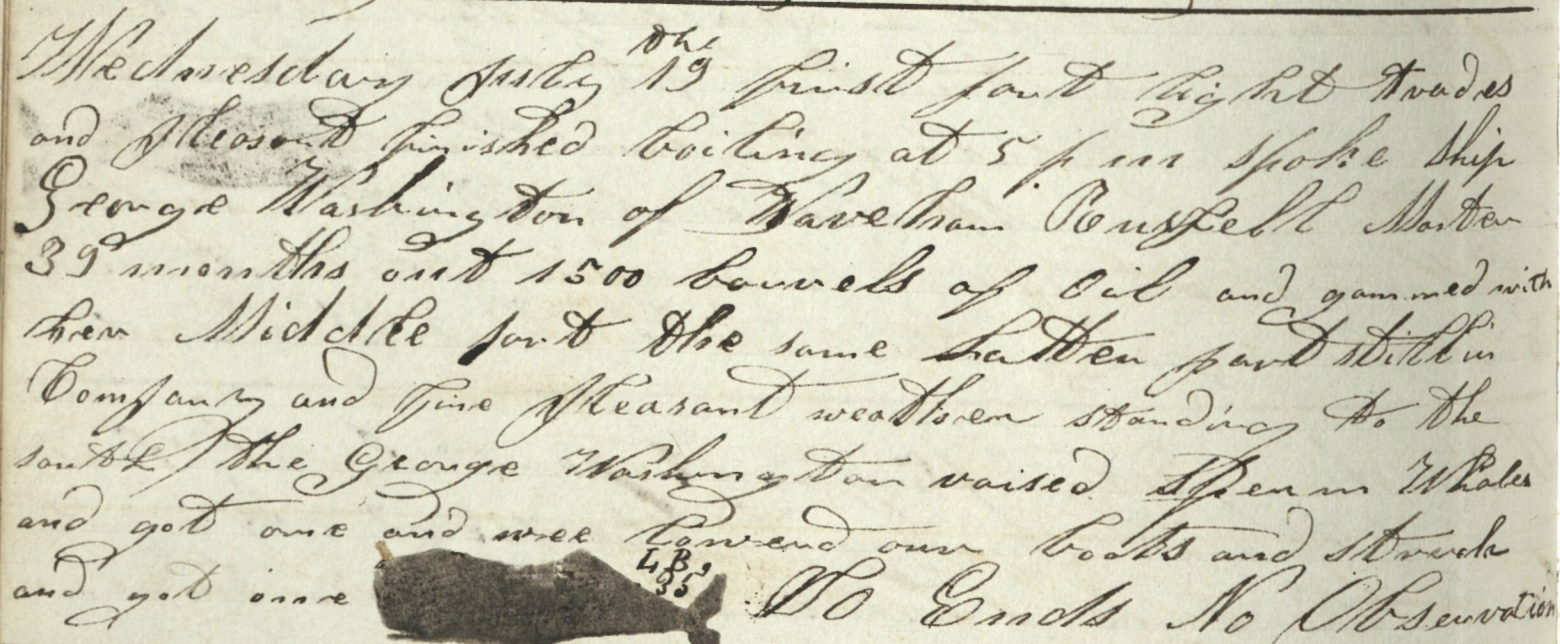 Wednesday July 19 the first part light trades
and pleasant finished boiling at 5 p m spoke ship
George Washington of Wareham Master
39 months out 1500 barrels of Oil and gammed with
her Middle part the same Latter part still in
Company and fine pleasant weather standing to the
south the George Washington raised Sperm Whales
and got one and wee lowered our boats and struck
and got one LB, 35 So Ends No Observation